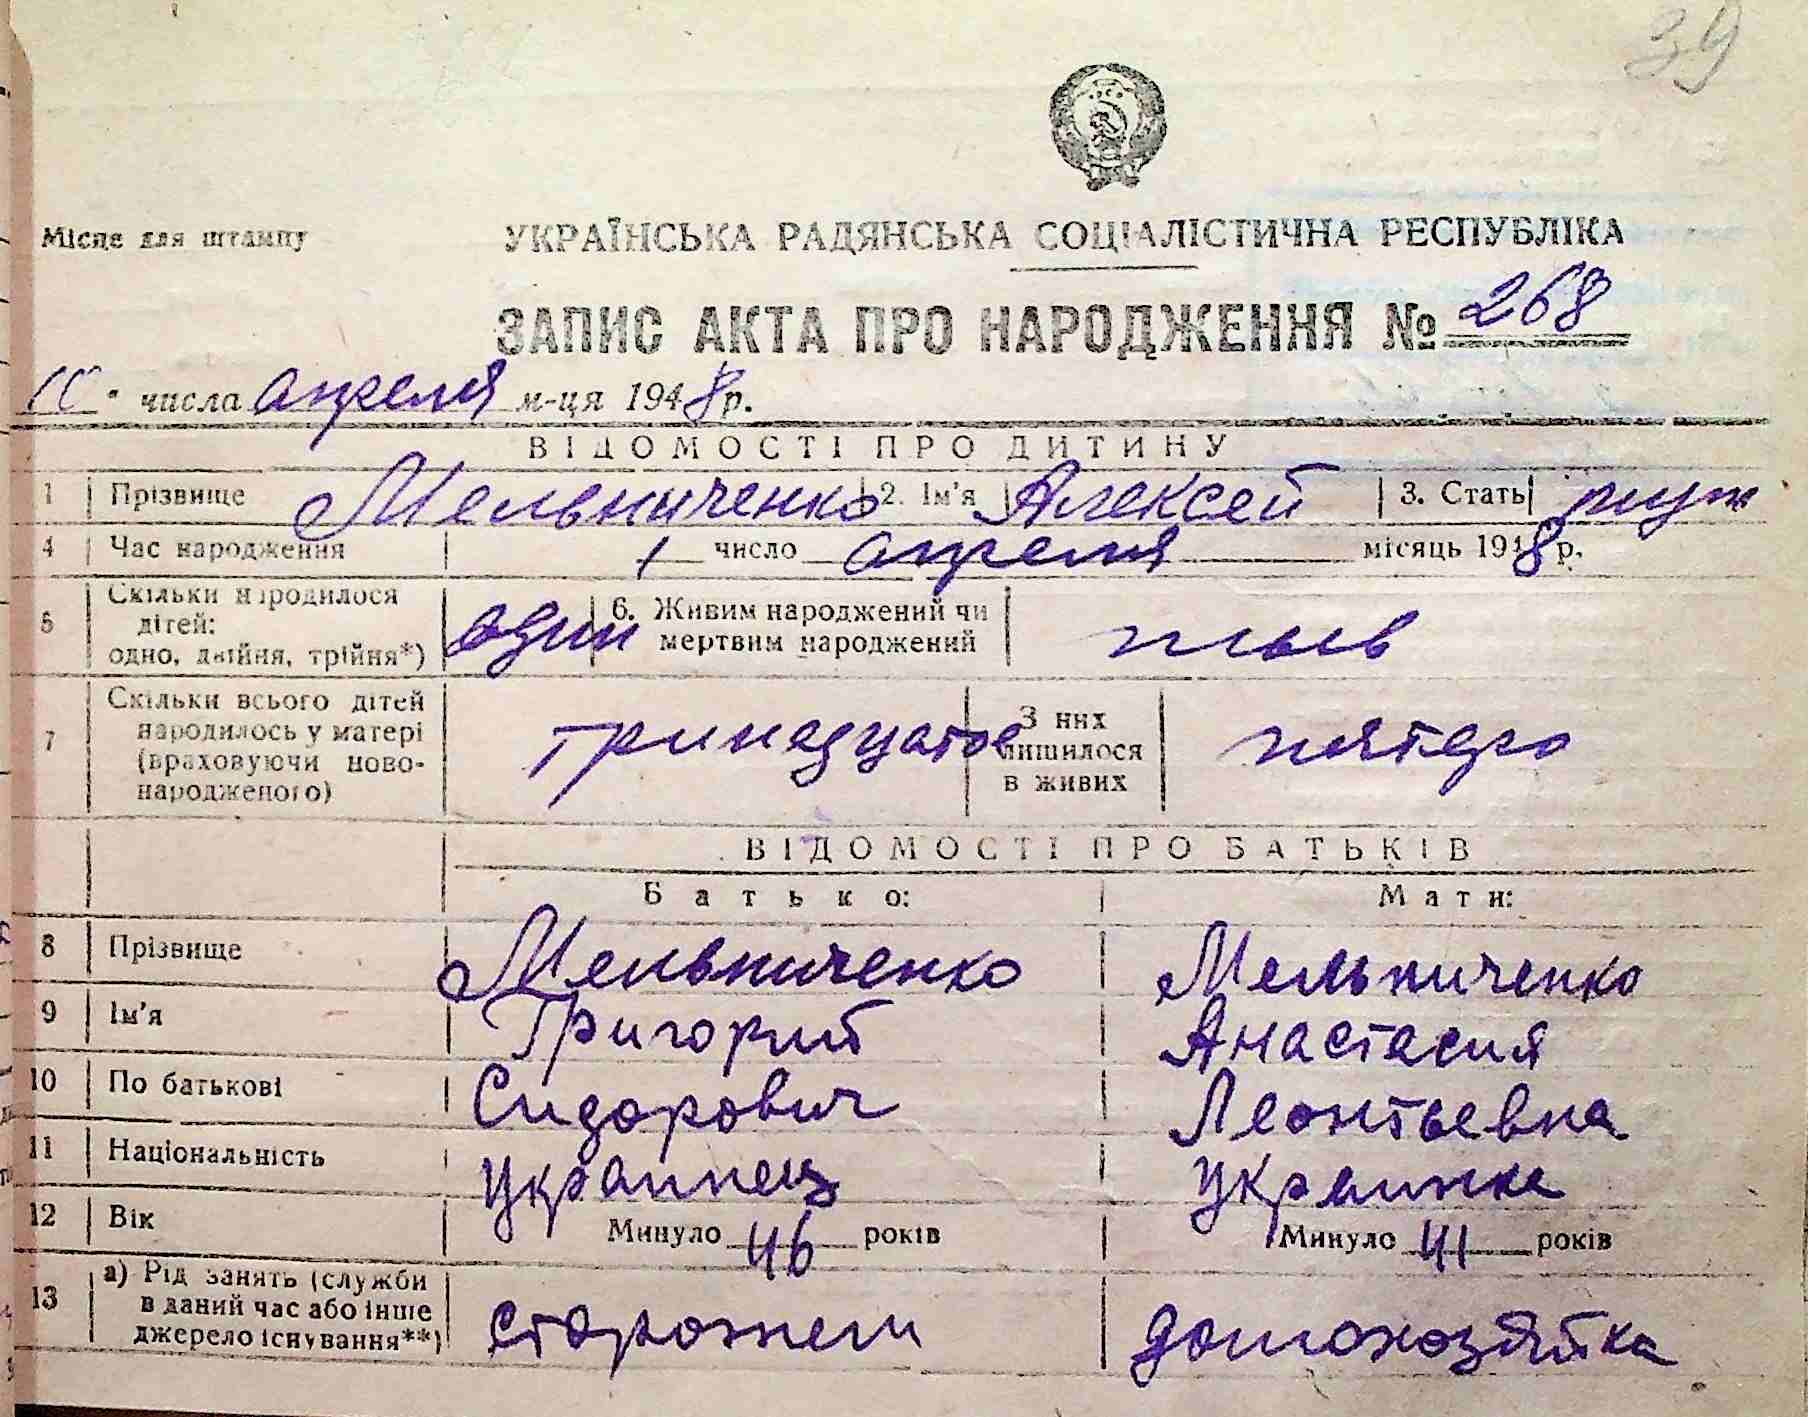 39
Місце для штампу
УКРАЇНСЬКА РАДЯНСЬКА СОЦІАЛІСТИЧНА РЕСПУБЛІКА
ЗАПИС АКТА ПРО НАРОДЖЕННЯ № 268
числа апреля м-ця 1948 р.
ВІДОМОСТІ ПРО ДИТИНУ
1 Прізвище Мельниченко 2. Ім'я Алексей 3. Стать муж
4 Час народження 1 число апреля місяць 1948 р.
5 Скільки народилося дітей: одно, двійня, трійня*) один 6. Живим народжений чи мертвим народжений
7 Скільки всього дітей народилось у матері (враховуючи новонародженого) тринадцатое З них лишилося в живих пятеро
ВІДОМОСТІ ПРО БАТЬКІВ
Батько: Мати:
8 Прізвище Мельниченко Мельниченко
9 Ім'я Григорий Анастасия
10 По батькові Сидорович Леонтьевна
11 Національність украинец украинка
12 Вік Минуло 46 років Минуло 41 років
13 а) Рід занять (служби в даний час або інше джерело існування**) сторожем домохозяйка